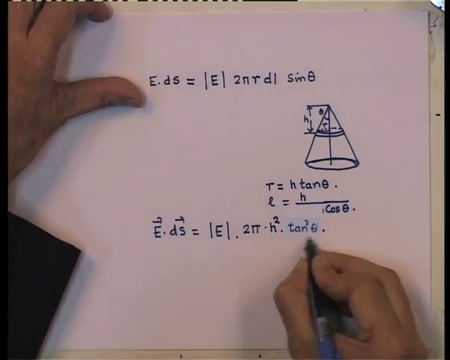 E. ds = |E| 2πr dl sinθ
θ
h
r
r = h tanθ.
l = h / cosθ.
E⃗. ds⃗ = |E|. 2π·h². tan²θ.